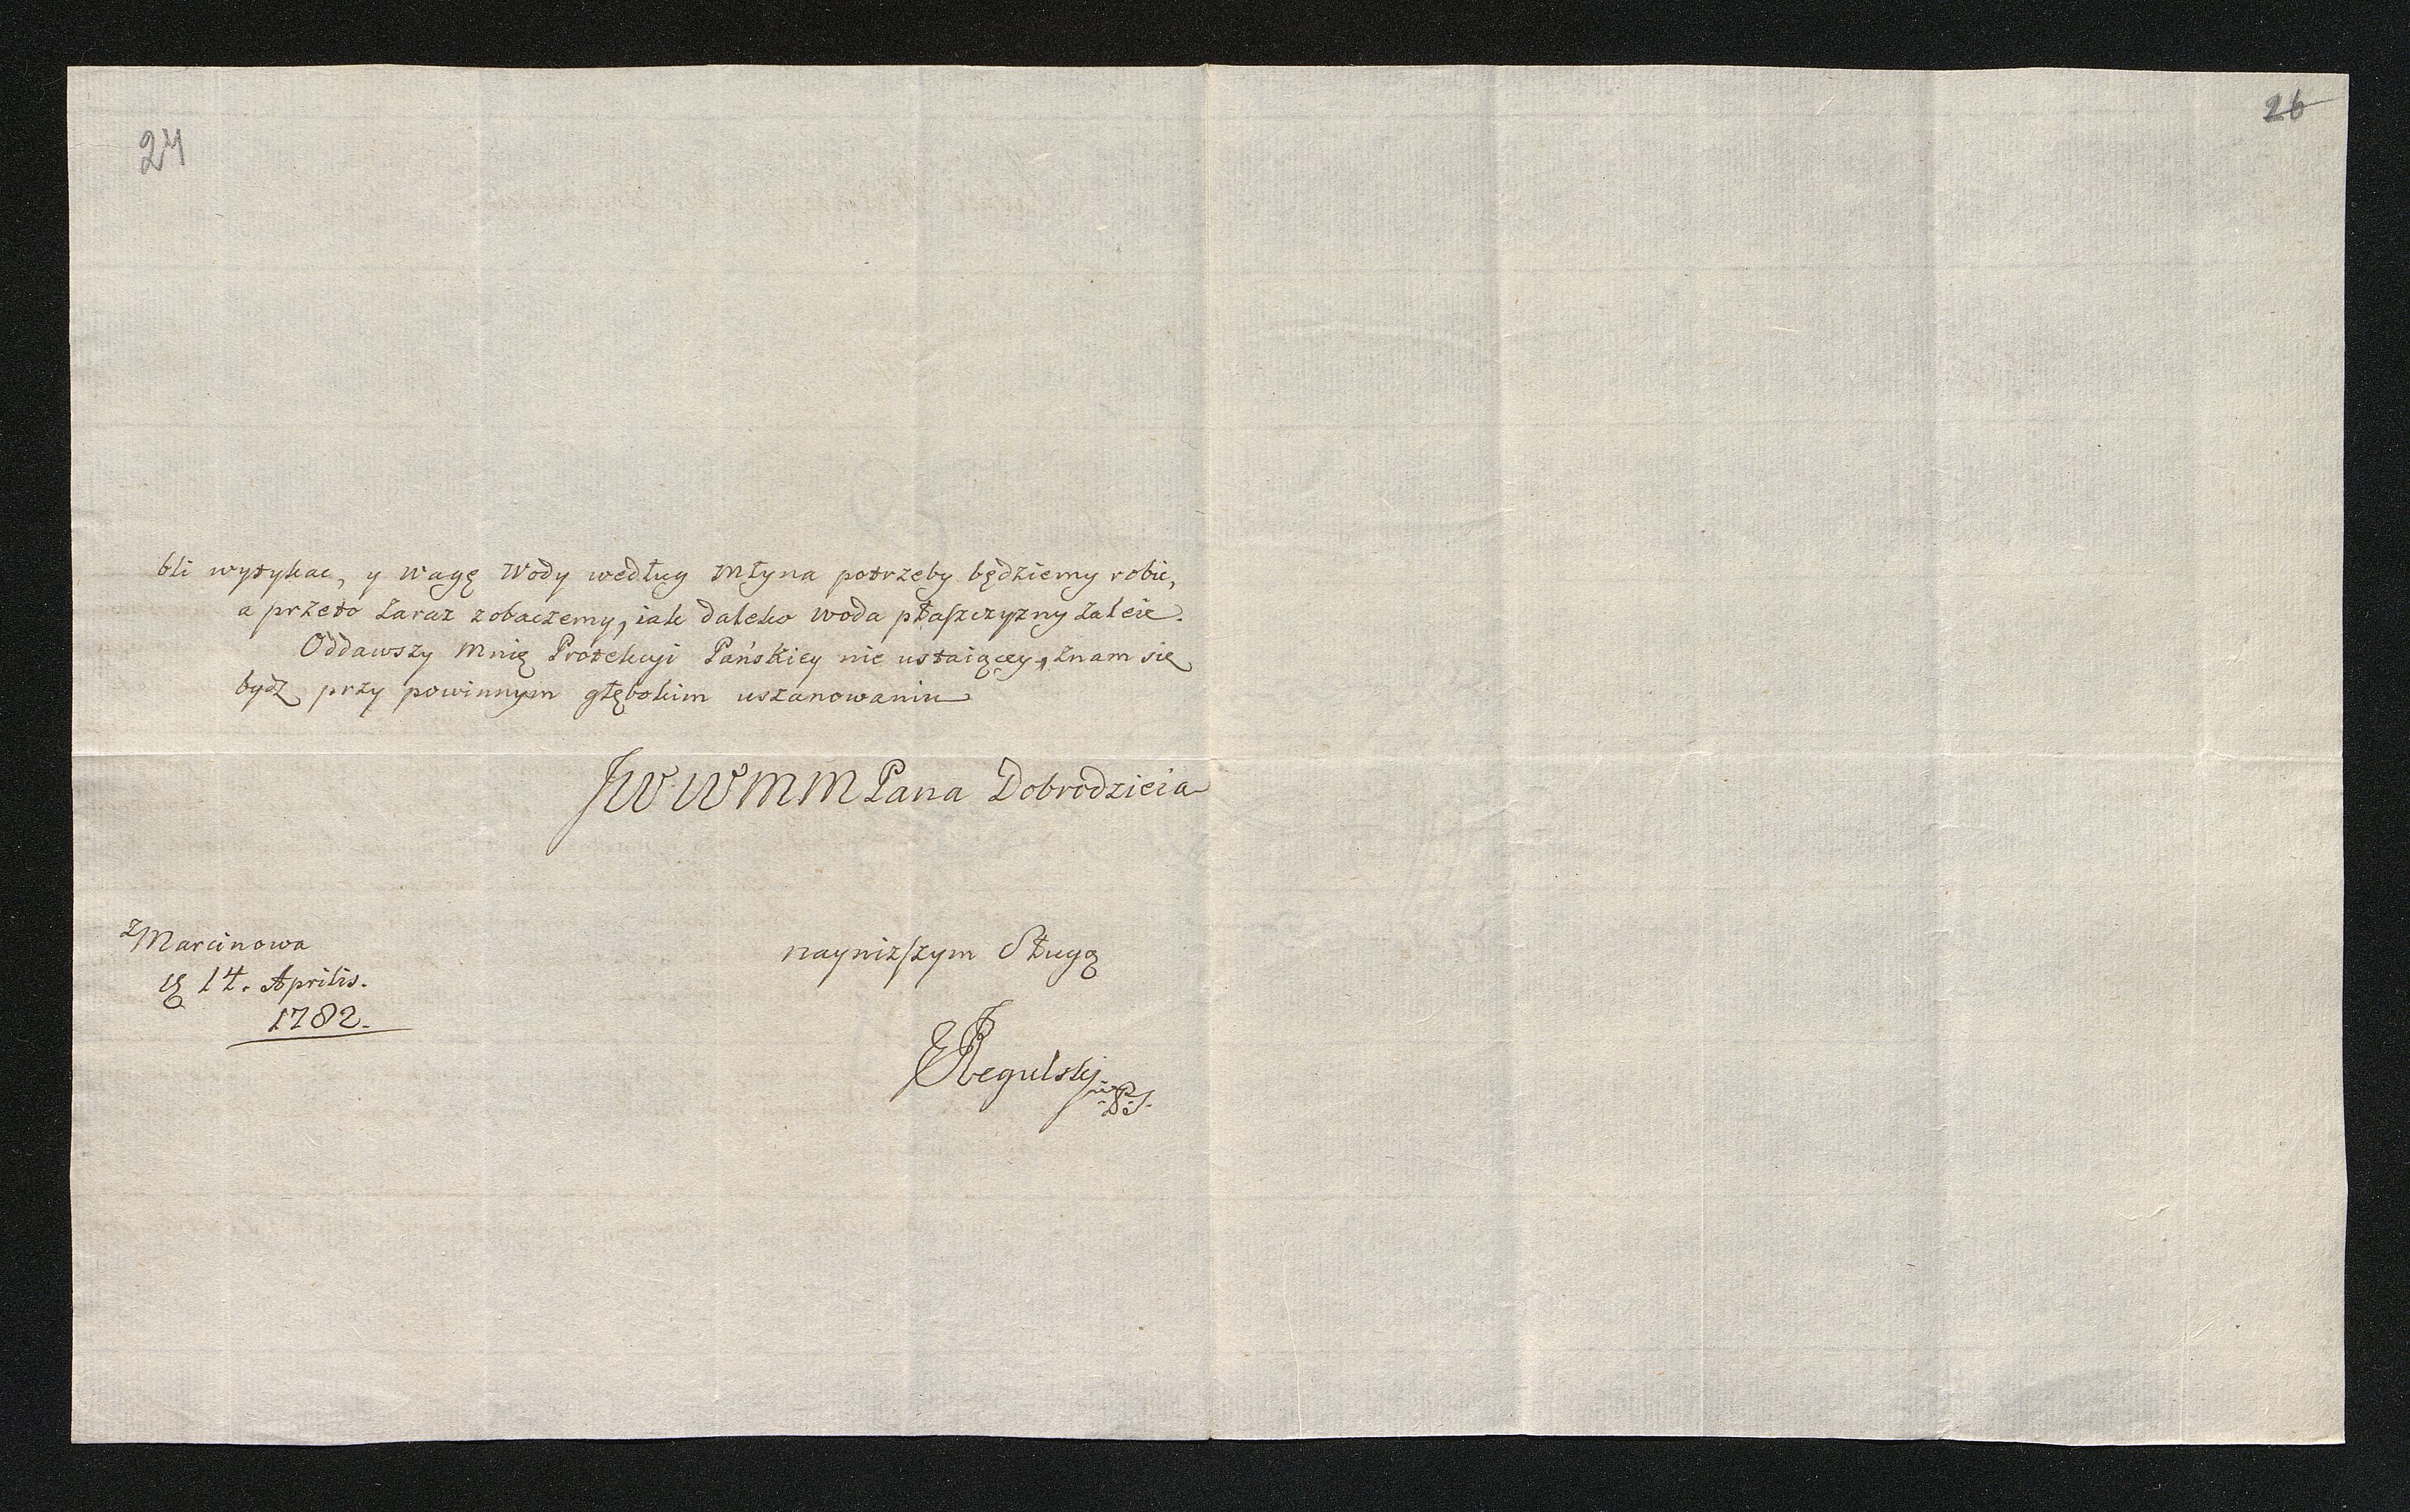 24
26
bli wytykac, y wagę Wody według Młyna potrzeby będziemy robic,
a przeto zaraz zobaczemy, iak daleko woda płaszczyzny zaleie.
Oddawszy mnię Protekcyi Pańskiey nie ustaiącey, znam się
bydź przy powinnym głębokim uszanowaniu
JWWMM Pana Dobrodzieia
z Marcinowa
14. Aprilis.
1782.
nayniższym Sługą
Regulskj